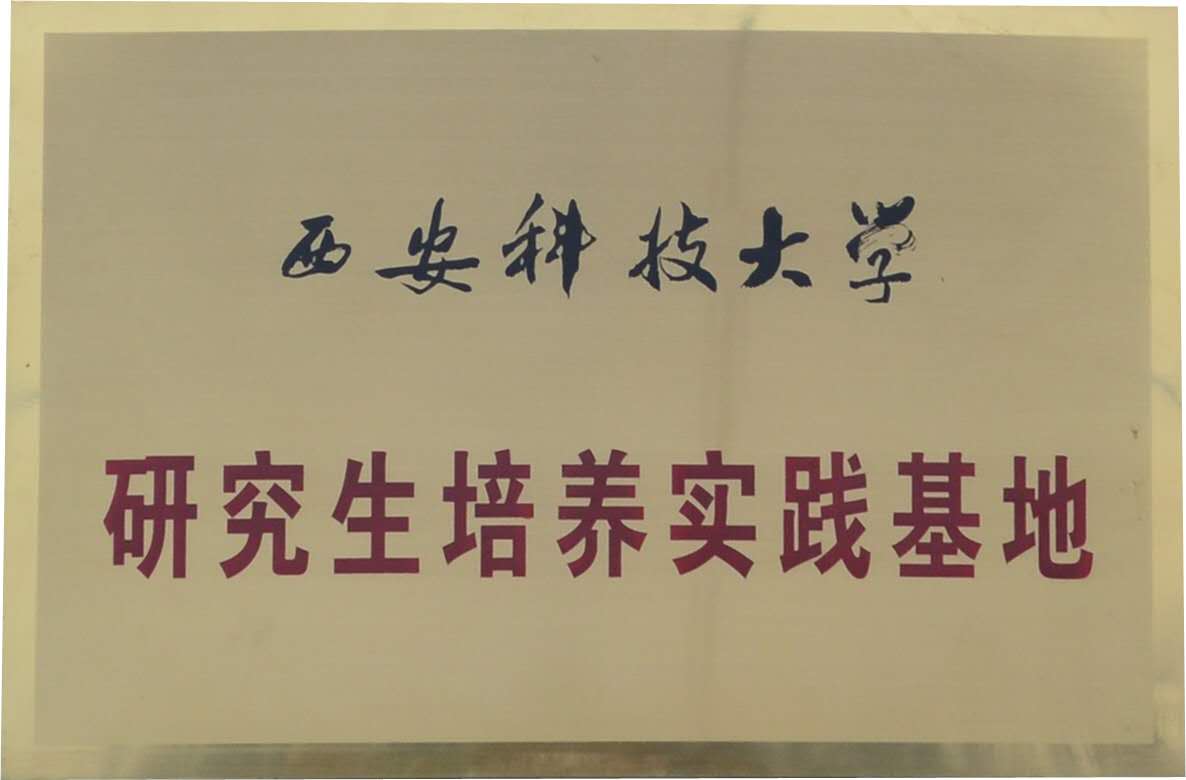 西安科技大学
研究生培养实践基地